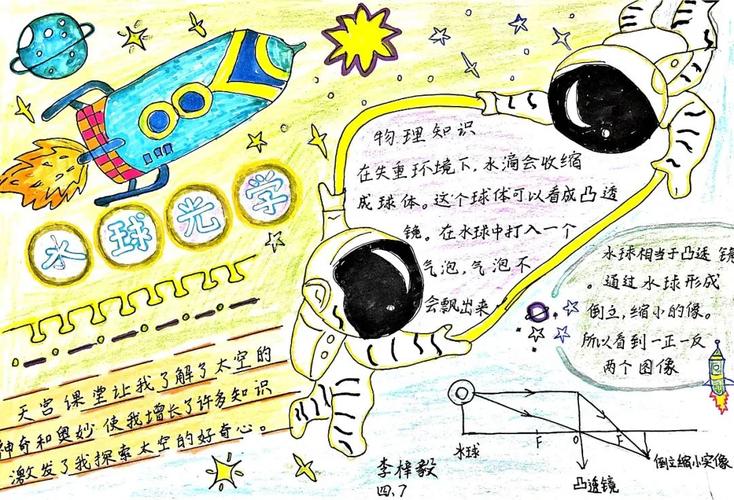 水球光学
物理知识
在失重环境下，水滴会收缩
成球体。这个球体可以看成凸透
镜。在水球中打入一个
气泡，气泡不
会飘出来
水球相当于凸透镜
。通过水球形成
倒立，缩小的像。
所以看到一正一反
两个图像
天宫课堂让我了解了太空的
神奇和奥妙使我增长了许多知识
激发了我探索太空的好奇心。
水球
F
O
F
倒立缩小实像
凸透镜
李梓毅
四.7